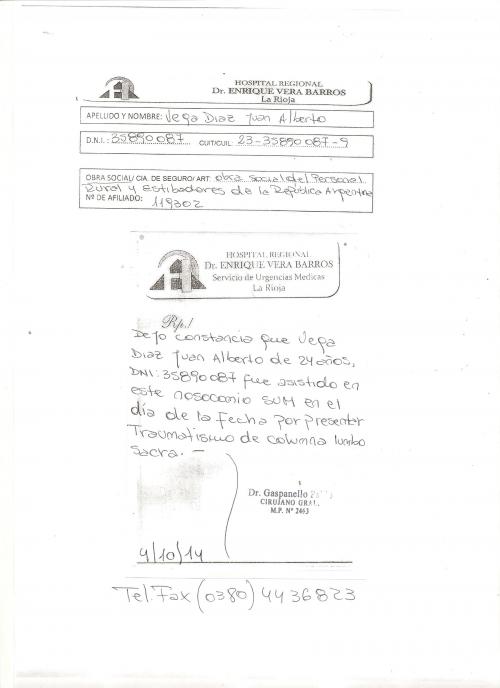 HOSPITAL REGIONAL
Dr. ENRIQUE VERA BARROS
La Rioja
APELLIDO Y NOMBRE: Vega Diaz Juan Alberto
D.N.I.: 35890087 CUIT/CUIL: 23-35890087-9
OBRA SOCIAL/ CIA. DE SEGURO/ ART: Obra Social del Personal
Rural y Estibadores de la Republica Argentina
Nº DE AFILIADO: 119302
HOSPITAL REGIONAL
Dr. ENRIQUE VERA BARROS
Servicio de Urgencias Medicas
La Rioja
Rp./
Dejo constancia que Vega
Diaz Juan Alberto de 24 años,
DNI: 35890087 fue asistido en
este nosocomio SUM en el
día de la fecha por presentar
Traumatismo de columna lumbo
sacra. -
Dr. Gaspanello
CIRUJANO GRAL.
M.P. Nº 2463
4/10/14
Tel. Fax (0380) 4436823